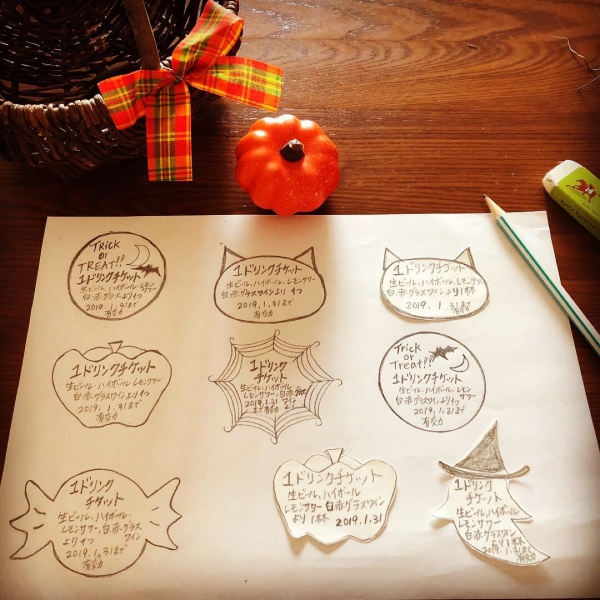 Trick
or
TREAT!!
1ドリンクチケット
生ビール、ハイボール
白・赤・グラスより1つ
2019.1.31まで
有効
1ドリンクチケット
生ビール、ハイボール、レモンサワー
白・赤・グラスワインより 1つ
2019.1.31まで
有効
1ドリンクチケット
生ビール、ハイボール、レモンサワー
白・赤・グラスワインより1杯
2019.1.31まで
有効
1ドリンクチケット
生ビール、ハイボール、レモンサワー
白・赤・グラスワインより1つ
2019.1.31まで
有効
1ドリンク
チケット
生ビール、ハイボール
レモンサワー、白・赤・グラス
2019.1.31 ワイン
まで有効 より
Trick
or
Treat!!
1ドリンクチケット
生ビール、ハイボール、レモン
サワー
白・赤・グラスワインより1つ
2019.1.31まで
有効
1ドリンク
チケット
生ビール、ハイボール、
レモンサワー、白・赤・グラス
ワイン
より1つ
2019.1.31まで
有効
1ドリンクチケット
生ビール、ハイボール
レモンサワー 白・赤・グラスワイン
より 1杯 2019.1.31
1ドリンク
チケット
生ビール、ハイボール
レモンサワー
白・赤・グラスワイン
より1杯
2019.1.31まで
有効